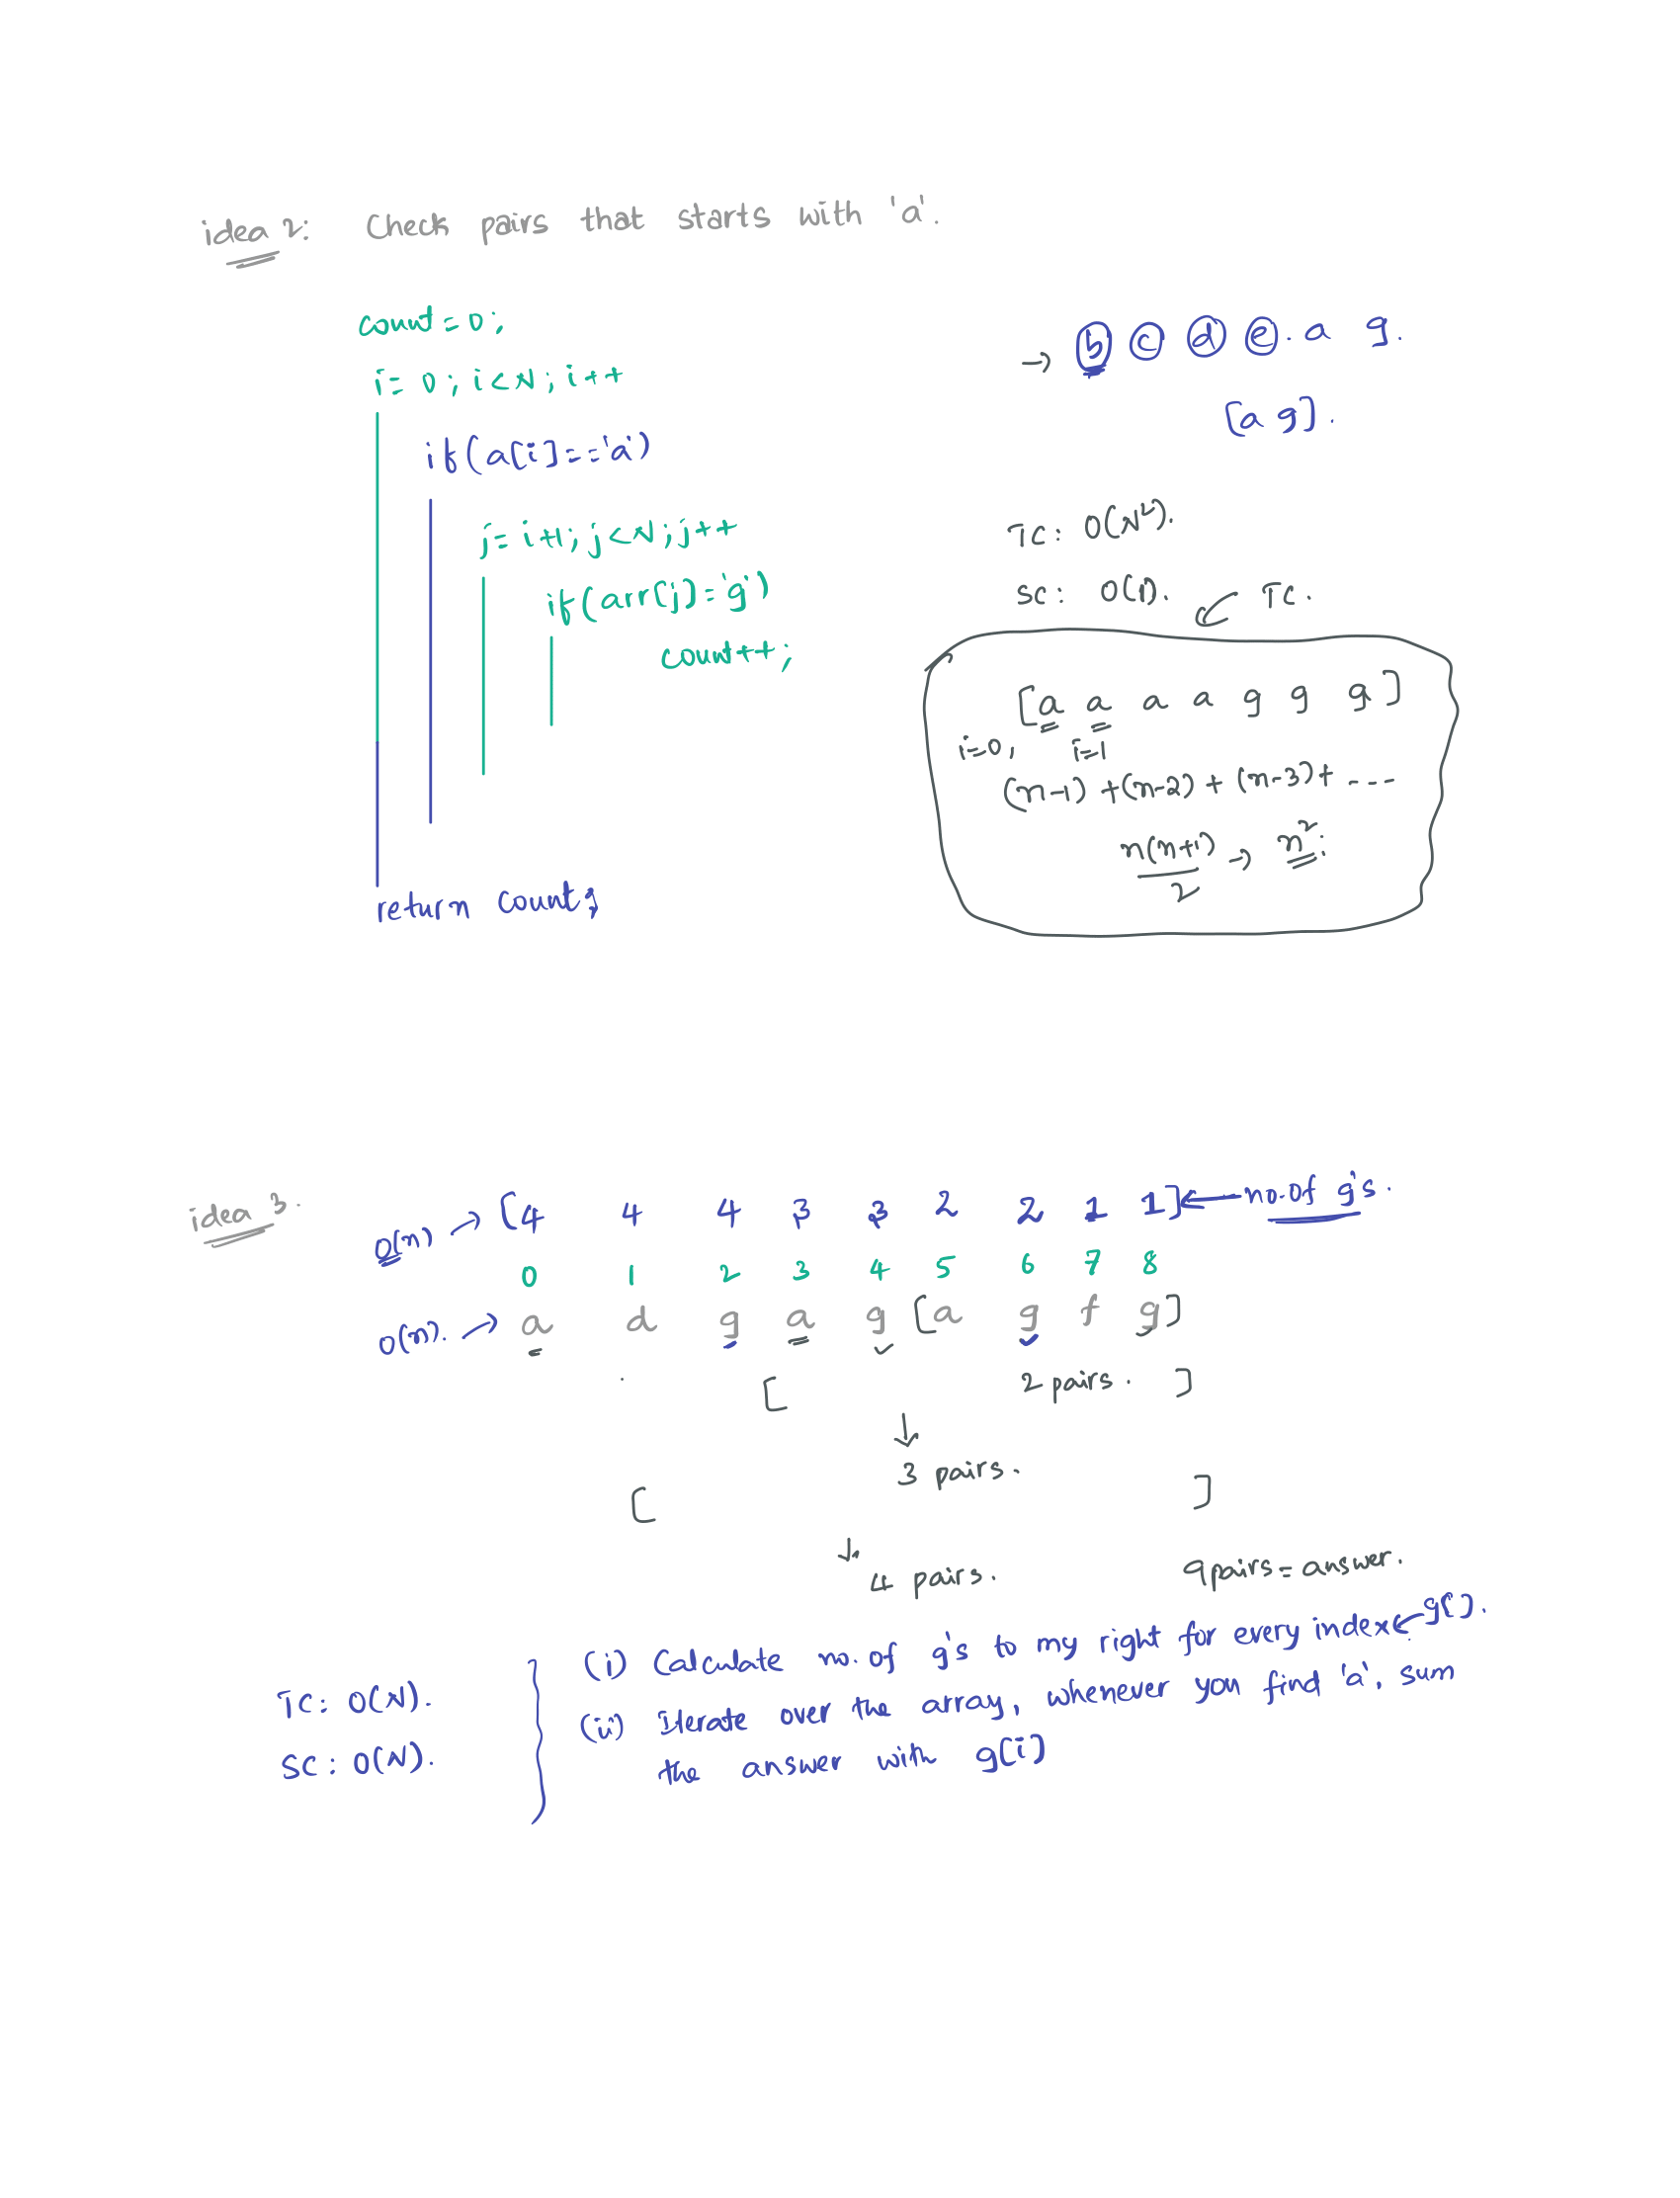 idea 2: Check pairs that starts with 'a'.
count=0;
i=0; i<N; i++
if(a[i]=='a')
j=i+1; j<N; j++
if(arr[j]='g')
count++;
return count;
→ b c d e. a g.
[a g].
TC: O(N²).
SC: O(1).
TC.
[a a a a g g g]
i=0, i=1
(n-1)+(n-2)+(n-3)+ ----
n(n+1)/2 → n².
idea 3.
O(n) → [4 4 4 3 3 2 2 1 1] ← no.of g's.
0 1 2 3 4 5 6 7 8
O(n). → a d g a g [a g f g]
[ 2 pairs. ]
↓
3 pairs.
[ ]
↓
4 pairs. 9pairs=answer.
(i) Calculate no.of g's to my right for every index ← g[].
(ii) Iterate over the array, whenever you find 'a', sum
the answer with g[i]
TC: O(N).
SC: O(N).